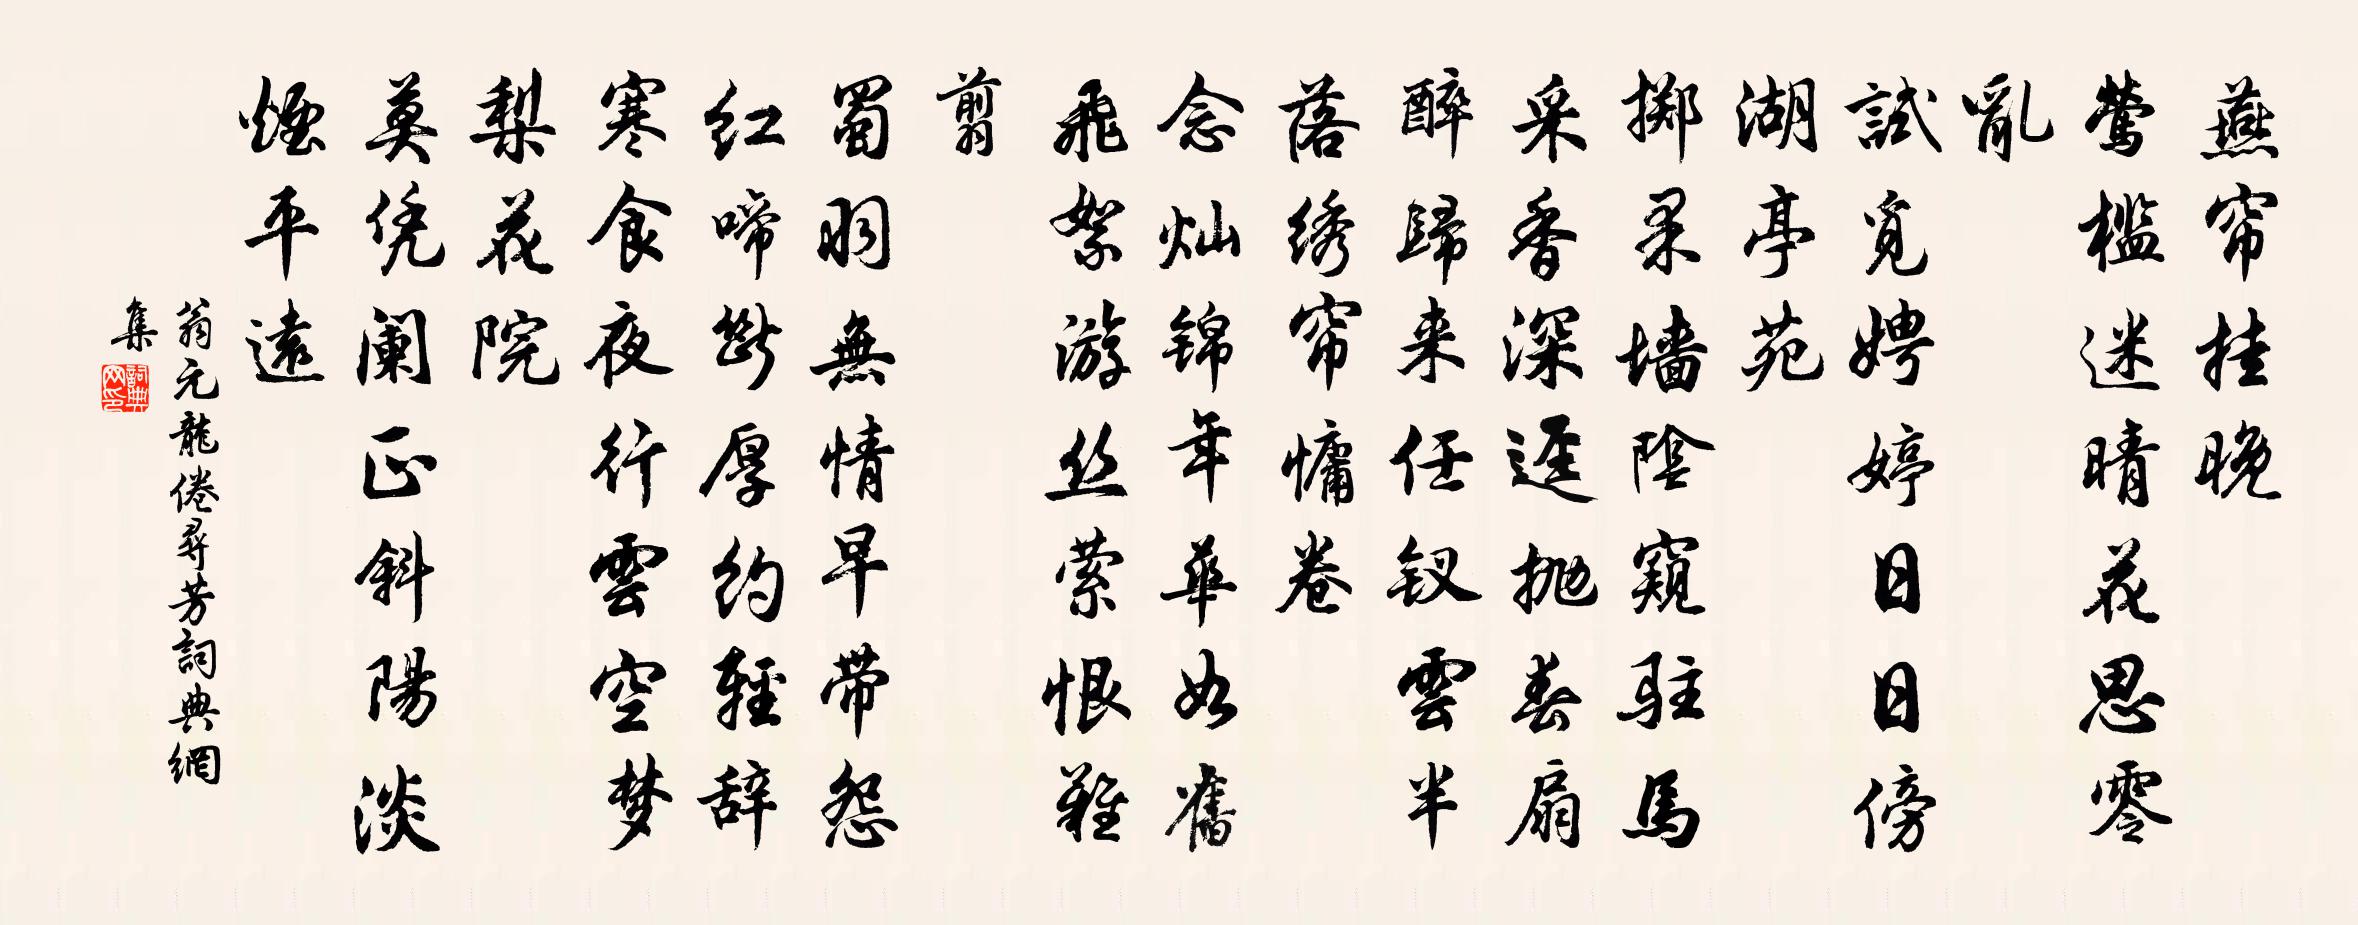 燕帘挂晚
莺槛迷晴花思零
亂
試覓娉婷日日傍
湖亭苑
掷果墙陰窺駐馬
采香深逕抛春扇
醉歸来任钗雲半
落绣帘慵卷
念灿锦年華如舊
飛絮游丝萦恨難
翦
蜀羽無情早带怨
红啼断厚约輕辞
寒食夜行雲空梦
梨花院
莫凭阑正斜陽淡
煙平遠
翁元龍倦尋芳詞典網
集
詞典网印